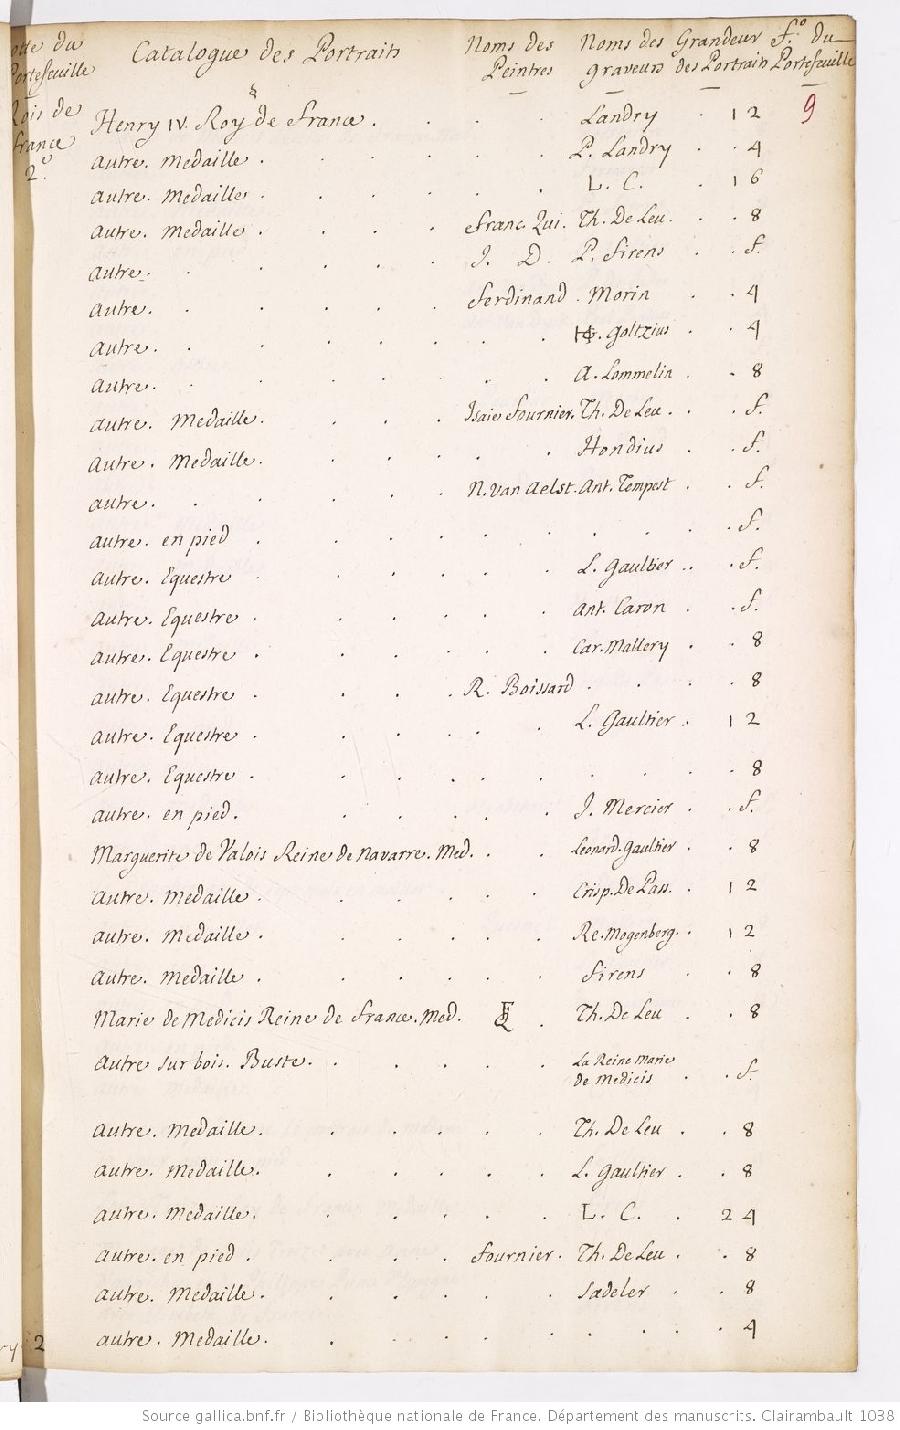 Cotte du Portefeuille Catalogue des Portraits Noms des Peintres Noms des graveurs Grandeur des Portrait f.o du Portefeuille
Rois de France 2.e
9
Henry IV. Roy de France . . . . Landry . 12
autre. Medaille . . . . . P. Landry . . 4
autre. Medaille . . . . . L. C. . 16
autre. Medaille . . . . franc. Qui. Th. De Leu . . 8
autre. . . . . J. D. P. firens . . f.
autre. . . . . ferdinand . Morin . . 4
autre. . . . . . H. Goltzius . . 4
autre. . . . . . A. Lommelin . . 8
autre. Medaille. . . . Isaie fournier. Th. De Leu . . f.
autre. Medaille. . . . . . Hondius . . f.
autre. . . . . N. van Aelst. Ant. Tempest . . f.
autre. en pied . . . . . . . . f.
autre. Equestre . . . . . L. Gaultier . . . f.
autre. Equestre . . . . . Ant. Caron . . f.
autre. Equestre . . . . . Car. Mallery . . 8
autre. Equestre . . . . R. Boissard . . . . 8
autre. Equestre . . . . . L. Gaultier . 12
autre. Equestre . . . . . . . . 8
autre. en pied. . . . . J. Mercier . . f.
Marguerite de Valois Reine de Navarre. Med. . . Leonard. Gaultier . . 8
autre. Medaille . . . . . Crisp. De Pass. . 12
autre. Medaille . . . . . Re. Mogenberg. . 12
autre. Medaille . . . . . firens . . 8
Marie de Medicis Reine de France. Med. . Th. De Leu . . 8
autre sur bois. Buste. . . . . . La Reine Marie
de Medicis . . f.
autre. Medaille. . . . . Th. De Leu . . 8
autre. Medaille. . . . . . L. Gaultier . . 8
autre. Medaille. . . . . . L. C. . 24
autre. en pied . . . . fournier. Th. De Leu . . 8
autre. Medaille . . . . . . Sadeler . . 8
autre. Medaille. . . . . . . . . 4
2
Source gallica.bnf.fr / Bibliothèque nationale de France. Département des manuscrits. Clairambault 1038